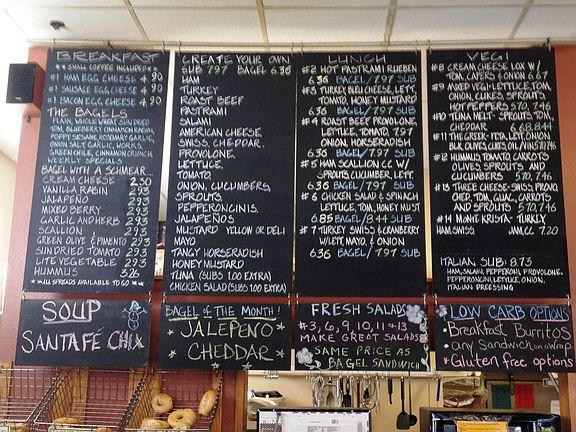 BREAKFAST
**SMALL COFFEE INCLUDED**
#1 HAM EGG CHEESE 4.90
#1 SAUSAGE EGG CHEESE 4.90
#1 BACON EGG CHEESE 4.90
THE BAGELS
PLAIN, WHOLE WHEAT, SUN DRIED
TOM, BLUEBERRY, CINNAMON RAISIN,
POPPY, SESAME, ROSEMARY GARLIC,
ONION, SALT, GARLIC, WORKS,
GREEN CHILE, CINNAMON CRUNCH,
WEEKLY SPECIALS
BAGEL WITH A SCHMEAR...
CREAM CHEESE 2.50
VANILLA RAISIN 2.93
JALAPEÑO 2.93
MIXED BERRY 2.93
GARLIC AND HERB 2.93
SCALLION 2.93
GREEN OLIVE & PIMENTO 2.93
SUN DRIED TOMATO 2.93
LITE VEGETABLE 2.93
HUMMUS 3.26
**ALL SPREADS AVAILABLE TO GO**
SOUP
SANTA FÉ CHIX
CREATE YOUR OWN
SUB 7.97 BAGEL 6.36
HAM
TURKEY
ROAST BEEF
PASTRAMI
SALAMI
AMERICAN CHEESE,
SWISS, CHEDDAR,
PROVOLONE,
LETTUCE,
TOMATO,
ONION, CUCUMBERS,
SPROUTS,
PEPPERONCINIS,
JALAPEÑOS
MUSTARD YELLOW OR DELI
MAYO
TANGY HORSERADISH
HONEY MUSTARD
TUNA (SUBS 1.00 EXTRA)
CHICKEN SALAD (SUBS 1.00 EXTRA)
BAGEL OF THE MONTH!
*JALEPENO*
*CHEDDAR*
LUNCH
#2 HOT PASTRAMI RUEBEN
6.36 BAGEL/7.97 SUB
#3 TURKEY, BLEU CHEESE, LETT,
TOMATO, HONEY MUSTARD
6.36 BAGEL/7.97 SUB
#4 ROAST BEEF PROVOLONE,
LETTUCE, TOMATO, 7.97
ONION, HORSERADISH
6.36 BAGEL/7.97 SUB
#5 HAM SCALLION CC W/
SPROUTS, CUCUMBER, LETT
6.36 BAGEL/7.97 SUB
#6 CHICKEN SALAD & SPINACH
LETTUCE, TOM, HONEY MUST
6.85 BAGEL/8.44 SUB
#7 TURKEY, SWISS & CRANBERRY
W/LETT, MAYO, & ONION
6.36 BAGEL/7.97 SUB
FRESH SALADS
#3, 6, 9, 10, 11 & 13
MAKE GREAT SALADS
SAME PRICE AS
BAGEL SANDWICH
VEGI
#8 CREAM CHEESE LOX W/
TOM, CAPERS & ONION 6.67
#9 MIXED VEGI-LETTUCE, TOM,
ONION, CUKES, SPROUTS,
HOT PEPPERS 5.70, 7.46
#10 TUNA MELT- SPROUTS, TOM,
CHEDDAR, 6.68, 8.44
#11 THE GREEK- FETA, LETT, ONION,
BLK OLIVES, CUKES, OIL/VIN 5.70, 7.46
#12 HUMMUS, TOMATO, CARROTS
OLIVES, SPROUTS AND
CUCUMBERS 5.70, 7.46
#13 THREE CHEESE-SWISS, PROVO,
CHED, TOM, CARROTS
AND SPROUTS 5.70, 7.46
#14 MONTE KRISTA- TURKEY,
HAM, SWISS, JAM, CC 7.20
ITALIAN SUB: 8.73
HAM, SALAMI, PEPPERONI, PROVOLONE,
PEPPERONCINI, LETTUCE, ONION,
ITALIAN DRESSING
LOW CARB OPTIONS
•Breakfast Burritos
•any Sandwich on wrap
*Gluten free options